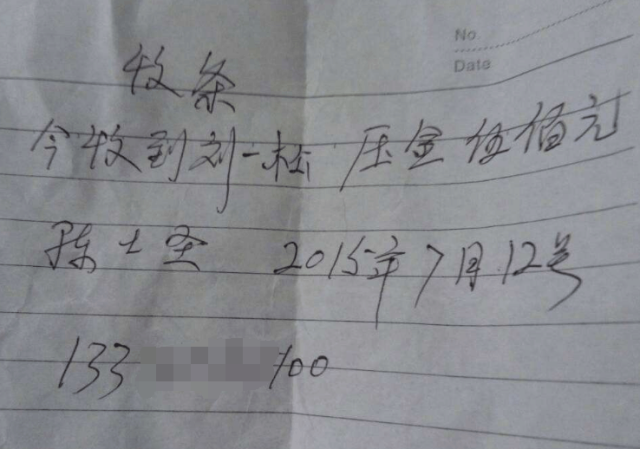 No
Date
收条
今收到刘一松 压金伍佰元
陈士圣 2015年7月12号
133 700